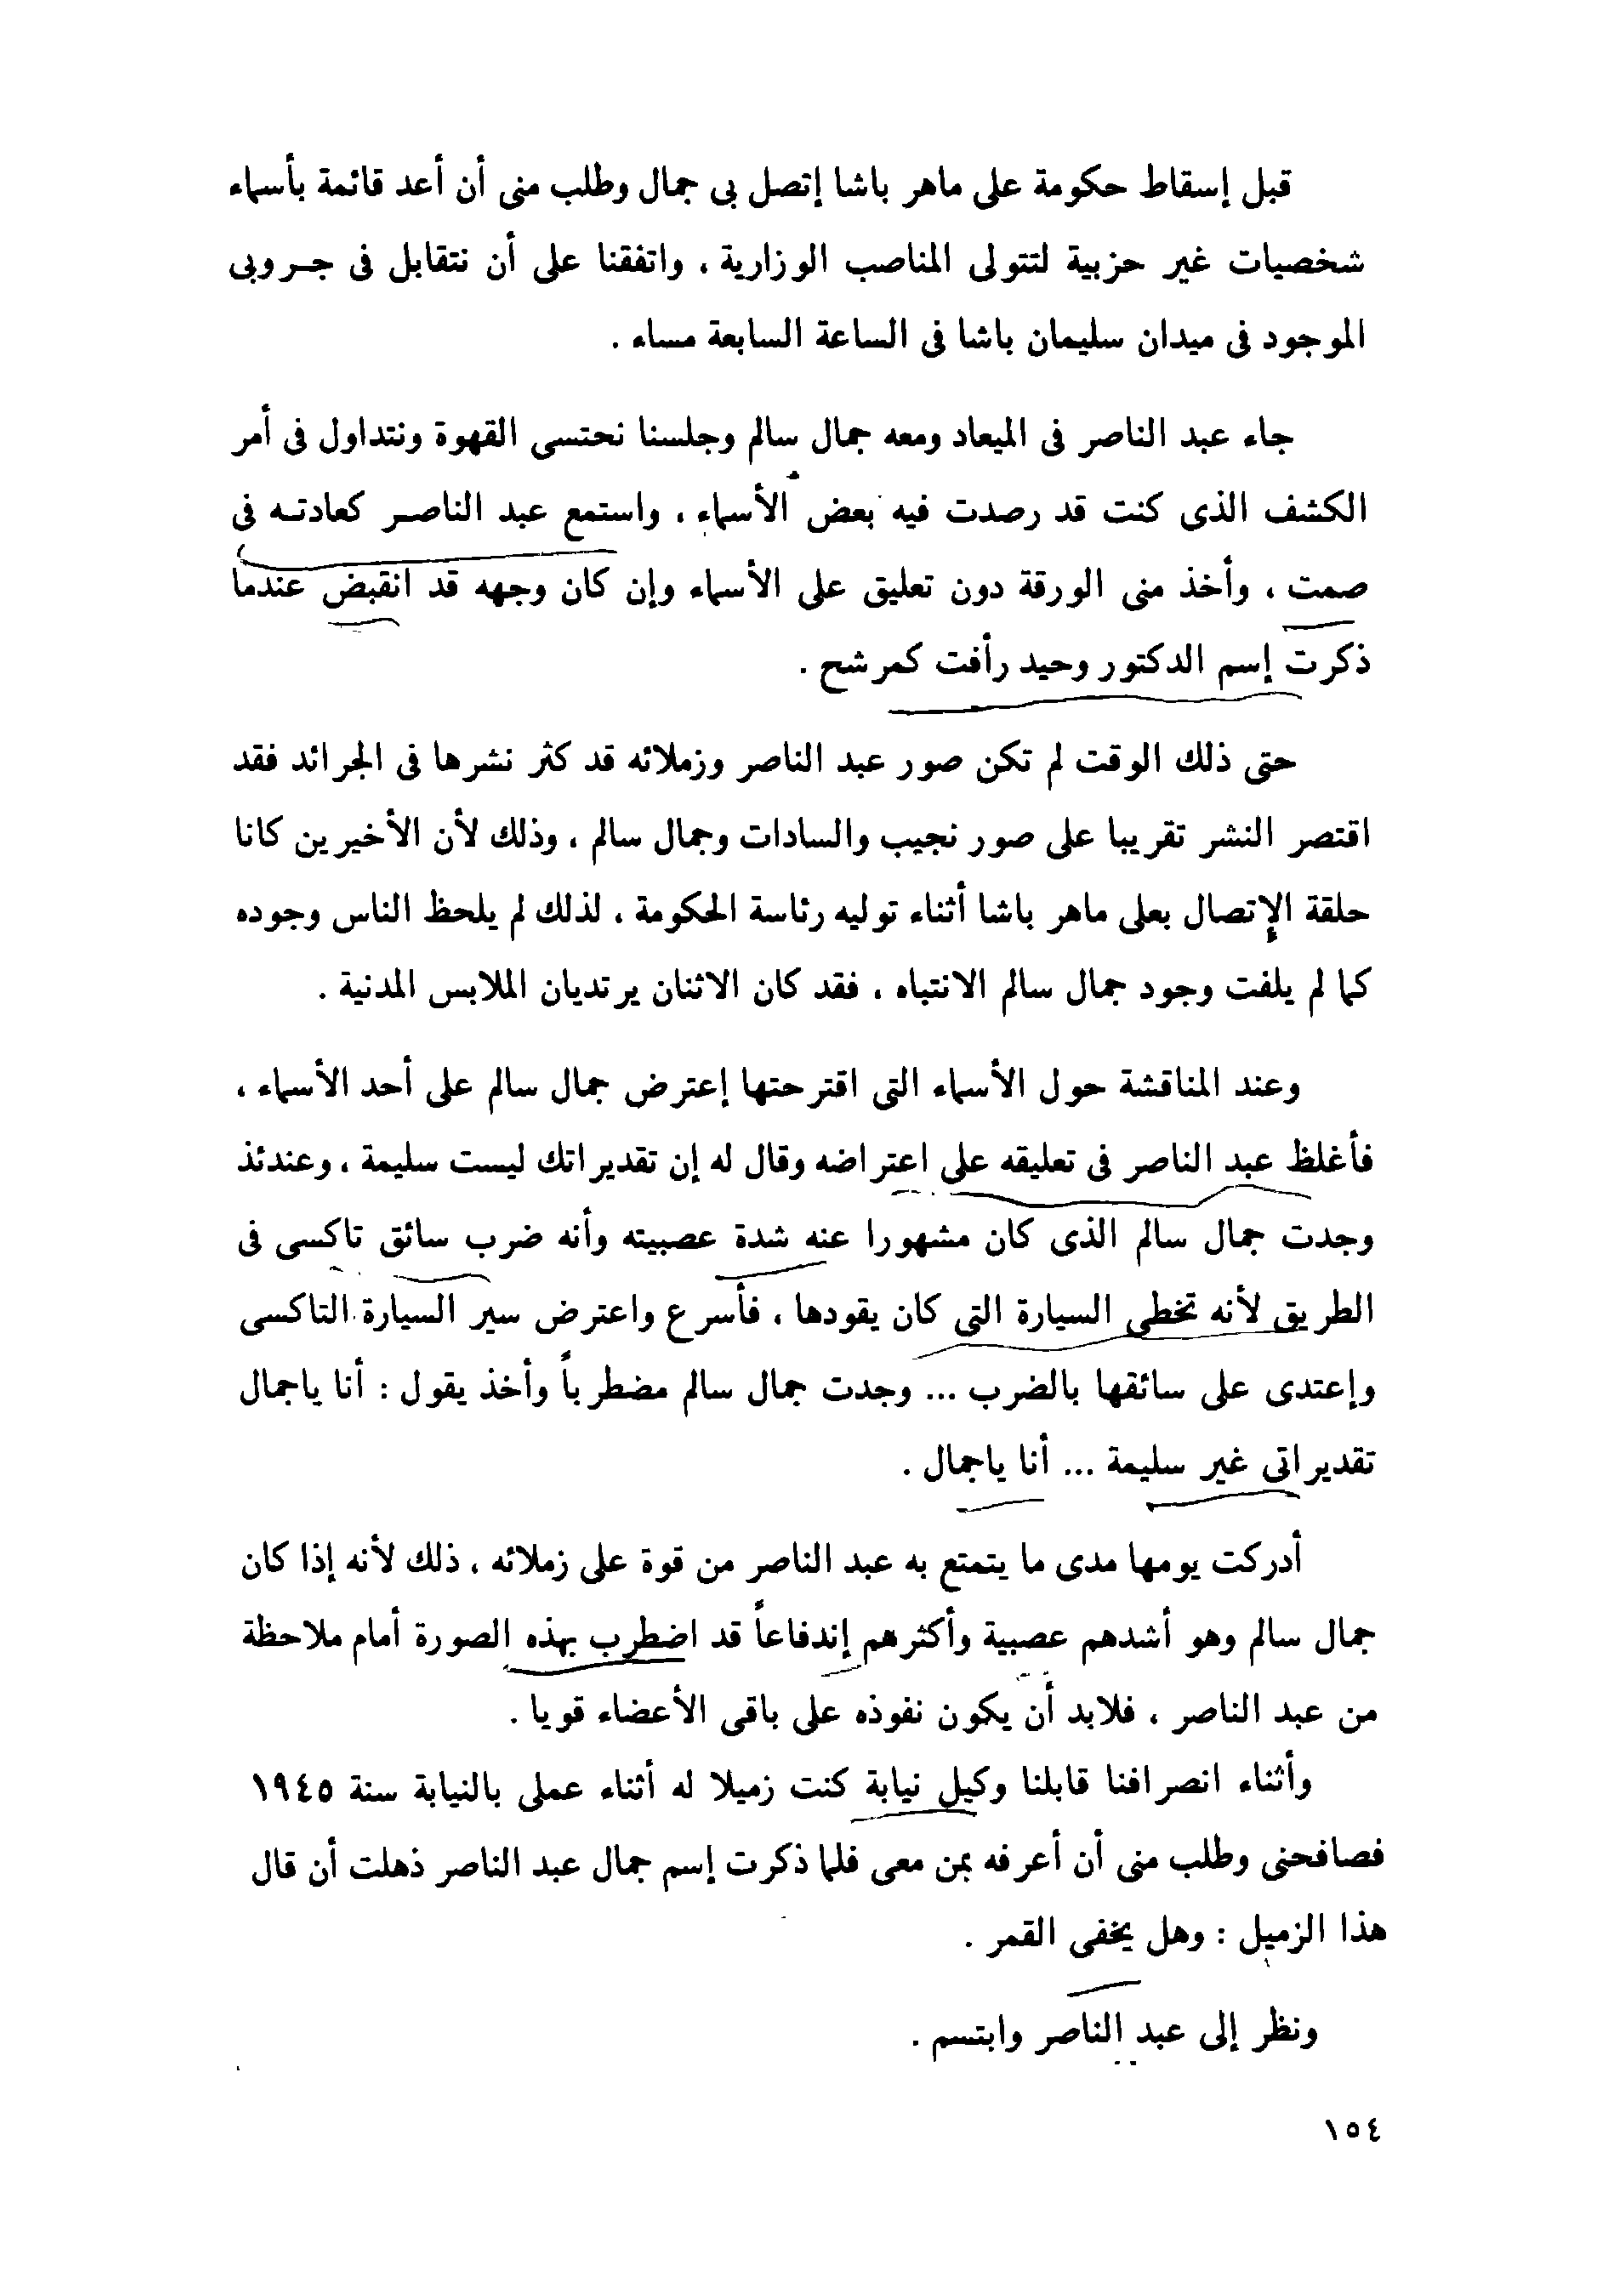 قبل إسقاط حكومة على ماهر باشا إتصل بى جمال وطلب منى أن أعد قائمة بأسماء
شخصيات غير حزبية لتتولى المناصب الوزارية ، واتفقنا على أن نتقابل فى جروبى
الموجود فى ميدان سليمان باشا فى الساعة السابعة مساء .
جاء عبد الناصر فى الميعاد ومعه جمال سالم وجلسنا نحتسى القهوة ونتداول فى أمر
الكشف الذى كنت قد رصدت فيه بعض الأسماء ، واستمع عبد الناصر كعادته فى
صمت ، وأخذ منى الورقة دون تعليق على الأسماء وإن كان وجهه قد انقبض عندما
ذكرت إسم الدكتور وحيد رأفت كمرشح .
حتى ذلك الوقت لم تكن صور عبد الناصر وزملائه قد كثر نشرها فى الجرائد فقد
اقتصر النشر تقريبا على صور نجيب والسادات وجمال سالم ، وذلك لأن الأخيرين كانا
حلقة الإتصال بعلى ماهر باشا أثناء توليه رئاسة الحكومة ، لذلك لم يلحظ الناس وجوده
كما لم يلفت وجود جمال سالم الانتباه ، فقد كان الاثنان يرتديان الملابس المدنية .
وعند المناقشة حول الأسماء التى اقترحتها إعترض جمال سالم على أحد الأسماء ،
فأغلظ عبد الناصر فى تعليقه على اعتراضه وقال له إن تقديراتك ليست سليمة ، وعندئذ
وجدت جمال سالم الذى كان مشهورا عنه شدة عصبيته وأنه ضرب سائق تاكسى فى
الطريق لأنه تخطى السيارة التى كان يقودها ، فأسرع واعترض سير السيارة التاكسى
وإعتدى على سائقها بالضرب ... وجدت جمال سالم مضطرباً وأخذ يقول : أنا ياجمال
تقديراتى غير سليمة ... أنا ياجمال .
أدركت يومها مدى ما يتمتع به عبد الناصر من قوة على زملائه ، ذلك لأنه إذا كان
جمال سالم وهو أشدهم عصبية وأكثرهم إندفاعاً قد اضطرب بهذه الصورة أمام ملاحظة
من عبد الناصر ، فلابد أن يكون نفوذه على باقى الأعضاء قويا .
وأثناء انصرافنا قابلنا وكيل نيابة كنت زميلا له أثناء عملى بالنيابة سنة ١٩٤٥
فصافحنى وطلب منى أن أعرفه بمن معى فلما ذكرت إسم جمال عبد الناصر ذهلت أن قال
هذا الزميل : وهل يخفى القمر .
ونظر إلى عبد الناصر وابتسم .
١٥٤